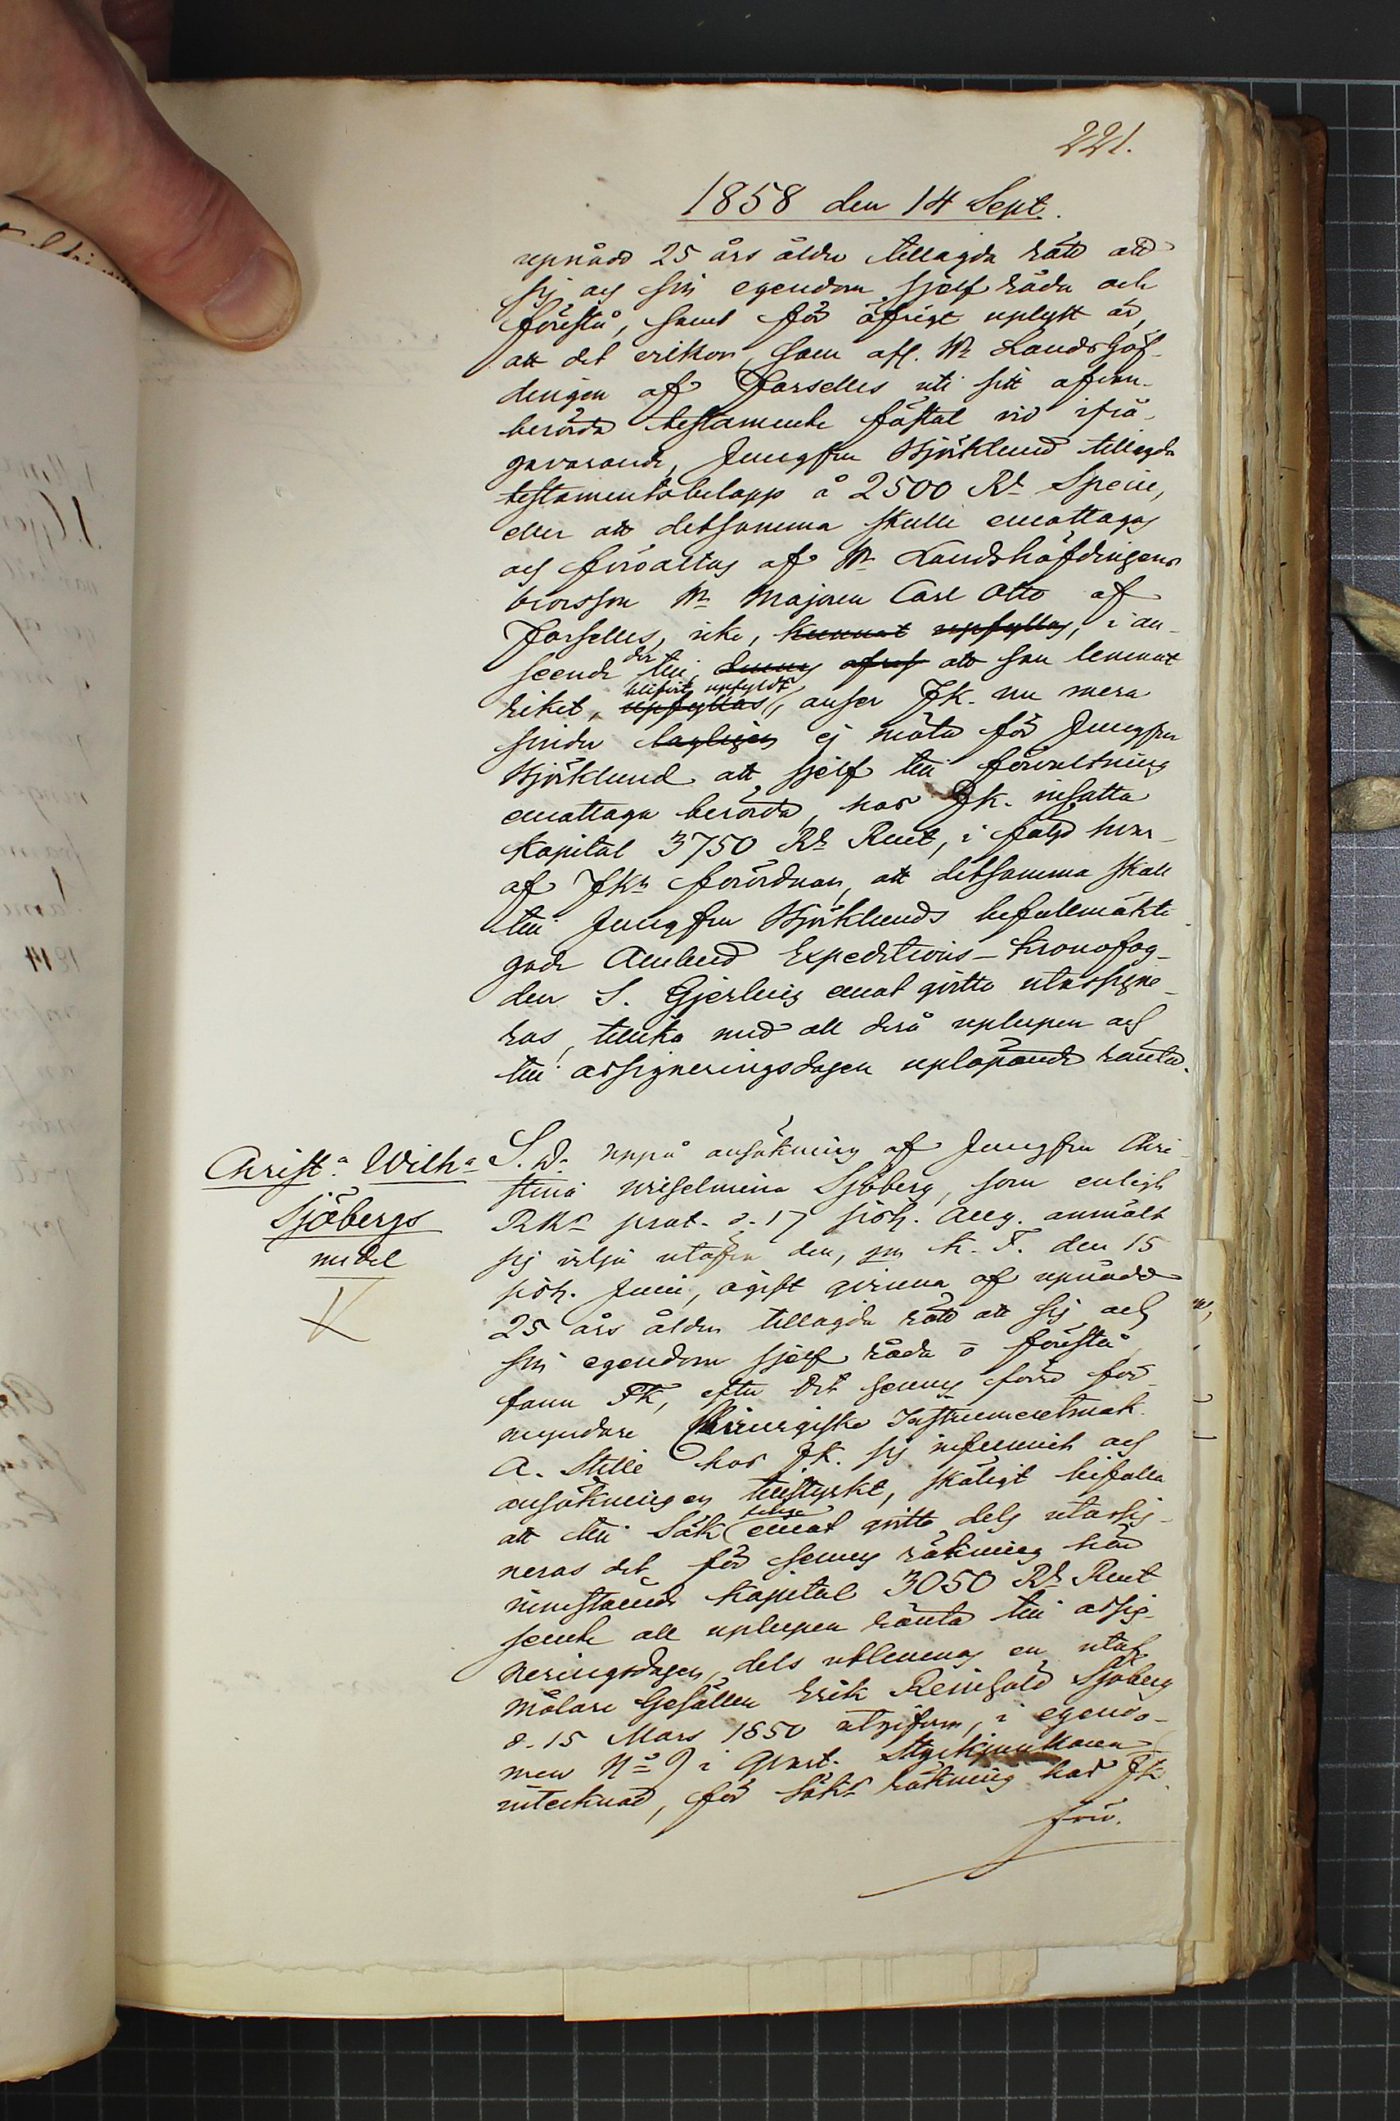 221.
1858 den 14 Sept.
uppnådd 25 års ålder tillagda rätt att
sig och sin egendom sjelf råda och
förestå, samt för öfrigt uplyst är,
att det vilkor, som afl. Hr Landshöf-
dingen af Forselles uti sitt ofvan-
berörda testamente fästat vid ifrå-
gavarande, Jungfru Björklund tillagda
testamentsbelopp å 2500 Rd Specie,
eller att detsamma skulle emottagas
och förvaltas af Hr Landshöfdingens
brorson Hr Majoren Carl Otto af
Forselles, icke, kunnat uppfyllas, i an-
seende dertill, denne att han lemnat
riket, blifvit uppfyldt upfyllas, anser FK. nu mera
hinder lagligen ej möta för Jungfru
Björklund att sjelf till förvaltning
emottaga berörda, hos FK. insatta
Kapital 3750 Rd Rmt, i följd hvar-
af FKn förordnar, att detsamma skall
till Jungfru Björklunds befullmäkti-
gade Ombud Expeditions-Kronofog-
den S. Gjerling emot qvitto utassigne-
ras, tillika med all derå uplupen och
till assigneringsdagen uplöpande ränta.
Christa Wilha
Sjöbergs
medel
S. D. Uppå ansökning af Jungfru Chri-
stina Wilhelmina Sjöberg, som enligt
RKns prot. d. 17 sistl. Aug. anmält
sig vilja utöfva den, gm K. F. den 15
sistl. Juni, ogift qvinna af uppnådd
25 års ålder tillagda rätt att sig och
sin egendom sjelf råda o förestå
fann FK, efter det hennes förra för-
myndare Chirurgiske Instrumentmak.
A. Stille hos FK. sig infunnit och
ansökningen tillstyrkt, skäligt bifalla
att till Sök emot qvitto dels utassig-
neras det för hennes räkning här
innestående Kapital 3050 Rd Rmt
jemte all uplupen ränta till assig-
neringsdagen, dels utlemnas en utaf
Målare Gesällen Erik Reinhold Sjöberg
d. 15 Mars 1850 utgifven, i egendo-
men No 9 i Qvart. Styckjunkaren
intecknad, för Sökns räkning hos FK.
förv.